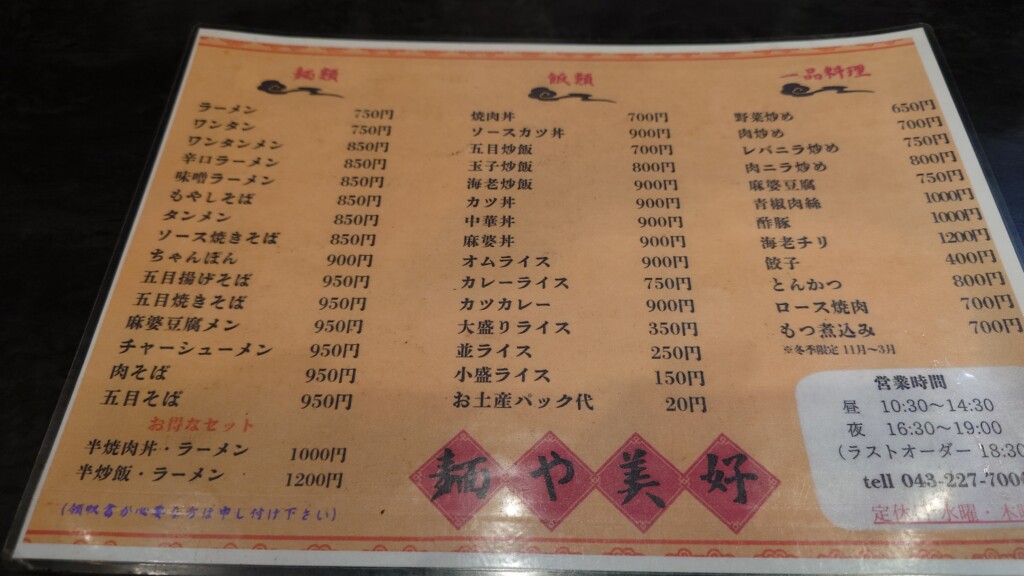 麺類
ラーメン 750円
ワンタン 750円
ワンタンメン 850円
辛口ラーメン 850円
味噌ラーメン 850円
もやしそば 850円
タンメン 850円
ソース焼きそば 850円
ちゃんぽん 900円
五目揚げそば 950円
五目焼きそば 950円
麻婆豆腐メン 950円
チャーシューメン 950円
肉そば 950円
五目そば 950円
お得なセット
半焼肉丼・ラーメン 1000円
半炒飯・ラーメン 1200円
(領収書が必要な方は申し付け下さい)
飯類
焼肉丼 700円
ソースカツ丼 900円
五目炒飯 700円
玉子炒飯 800円
海老炒飯 900円
カツ丼 900円
中華丼 900円
麻婆丼 900円
オムライス 900円
カレーライス 750円
カツカレー 900円
大盛りライス 350円
並ライス 250円
小盛ライス 150円
お土産パック代 20円
麺や美好
一品料理
野菜炒め 650円
肉炒め 700円
レバニラ炒め 750円
肉ニラ炒め 800円
麻婆豆腐 750円
青椒肉絲 1000円
酢豚 1000円
海老チリ 1200円
餃子 400円
とんかつ 800円
ロース焼肉 700円
もつ煮込み 700円
※冬季限定 11月～3月
営業時間
昼 10:30～14:30
夜 16:30～19:00
(ラストオーダー 18:30
tell 043-227-700
定休日 水曜・木